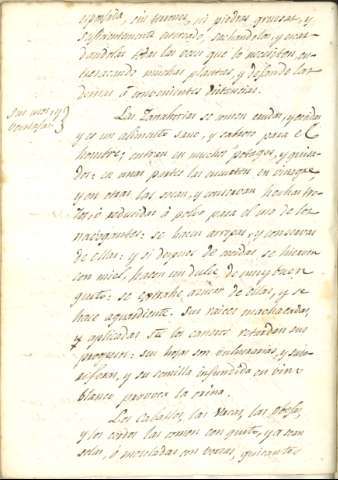 sin terrones, ni piedras gruesas, y
suficientemente estercado, sachandolos, y escar-
dandolos todas las veces que lo necesiten, en-
tresacando muchas plantas, y dejando las
demas á convenientes distancias.
Sus usos, y
ventajas
Las Zanahorias se usan crudas, y cocidas
y es un alimento sano, y sabroso para el
hombre; entran en muchos potages, y guisa-
dos: en unas partes las encurten en vinagre,
y en otras las secan, y conservan hechas tro-
zos, ó reducidas á polvo para el uso de los
navegantes: se hacen arropes, y conservas
de ellas: y si despues de asadas se hierven
con miel, hacen un dulce de muy buen
gusto: se extrahe azucar de ellas, y se
hace aguardiente. Sus raices machacadas,
y aplicadas á los cancros retardan sus
progresos: sus hojas son vulnerarias, y sudo-
rificas, y su semilla infundida en vino
blanco provoca la orina.
Los caballos, las vacas, las obejas,
y los cerdos las comen con gusto, ya sean
solas, ó mezcladas con berzas, guisantes